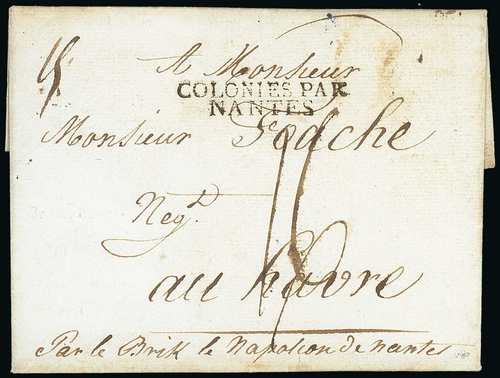 A Monsieur
COLONIES PAR
NANTES
Monsieur Foache
Negt.
au havre
Par le Brik le Napoleon de nantes